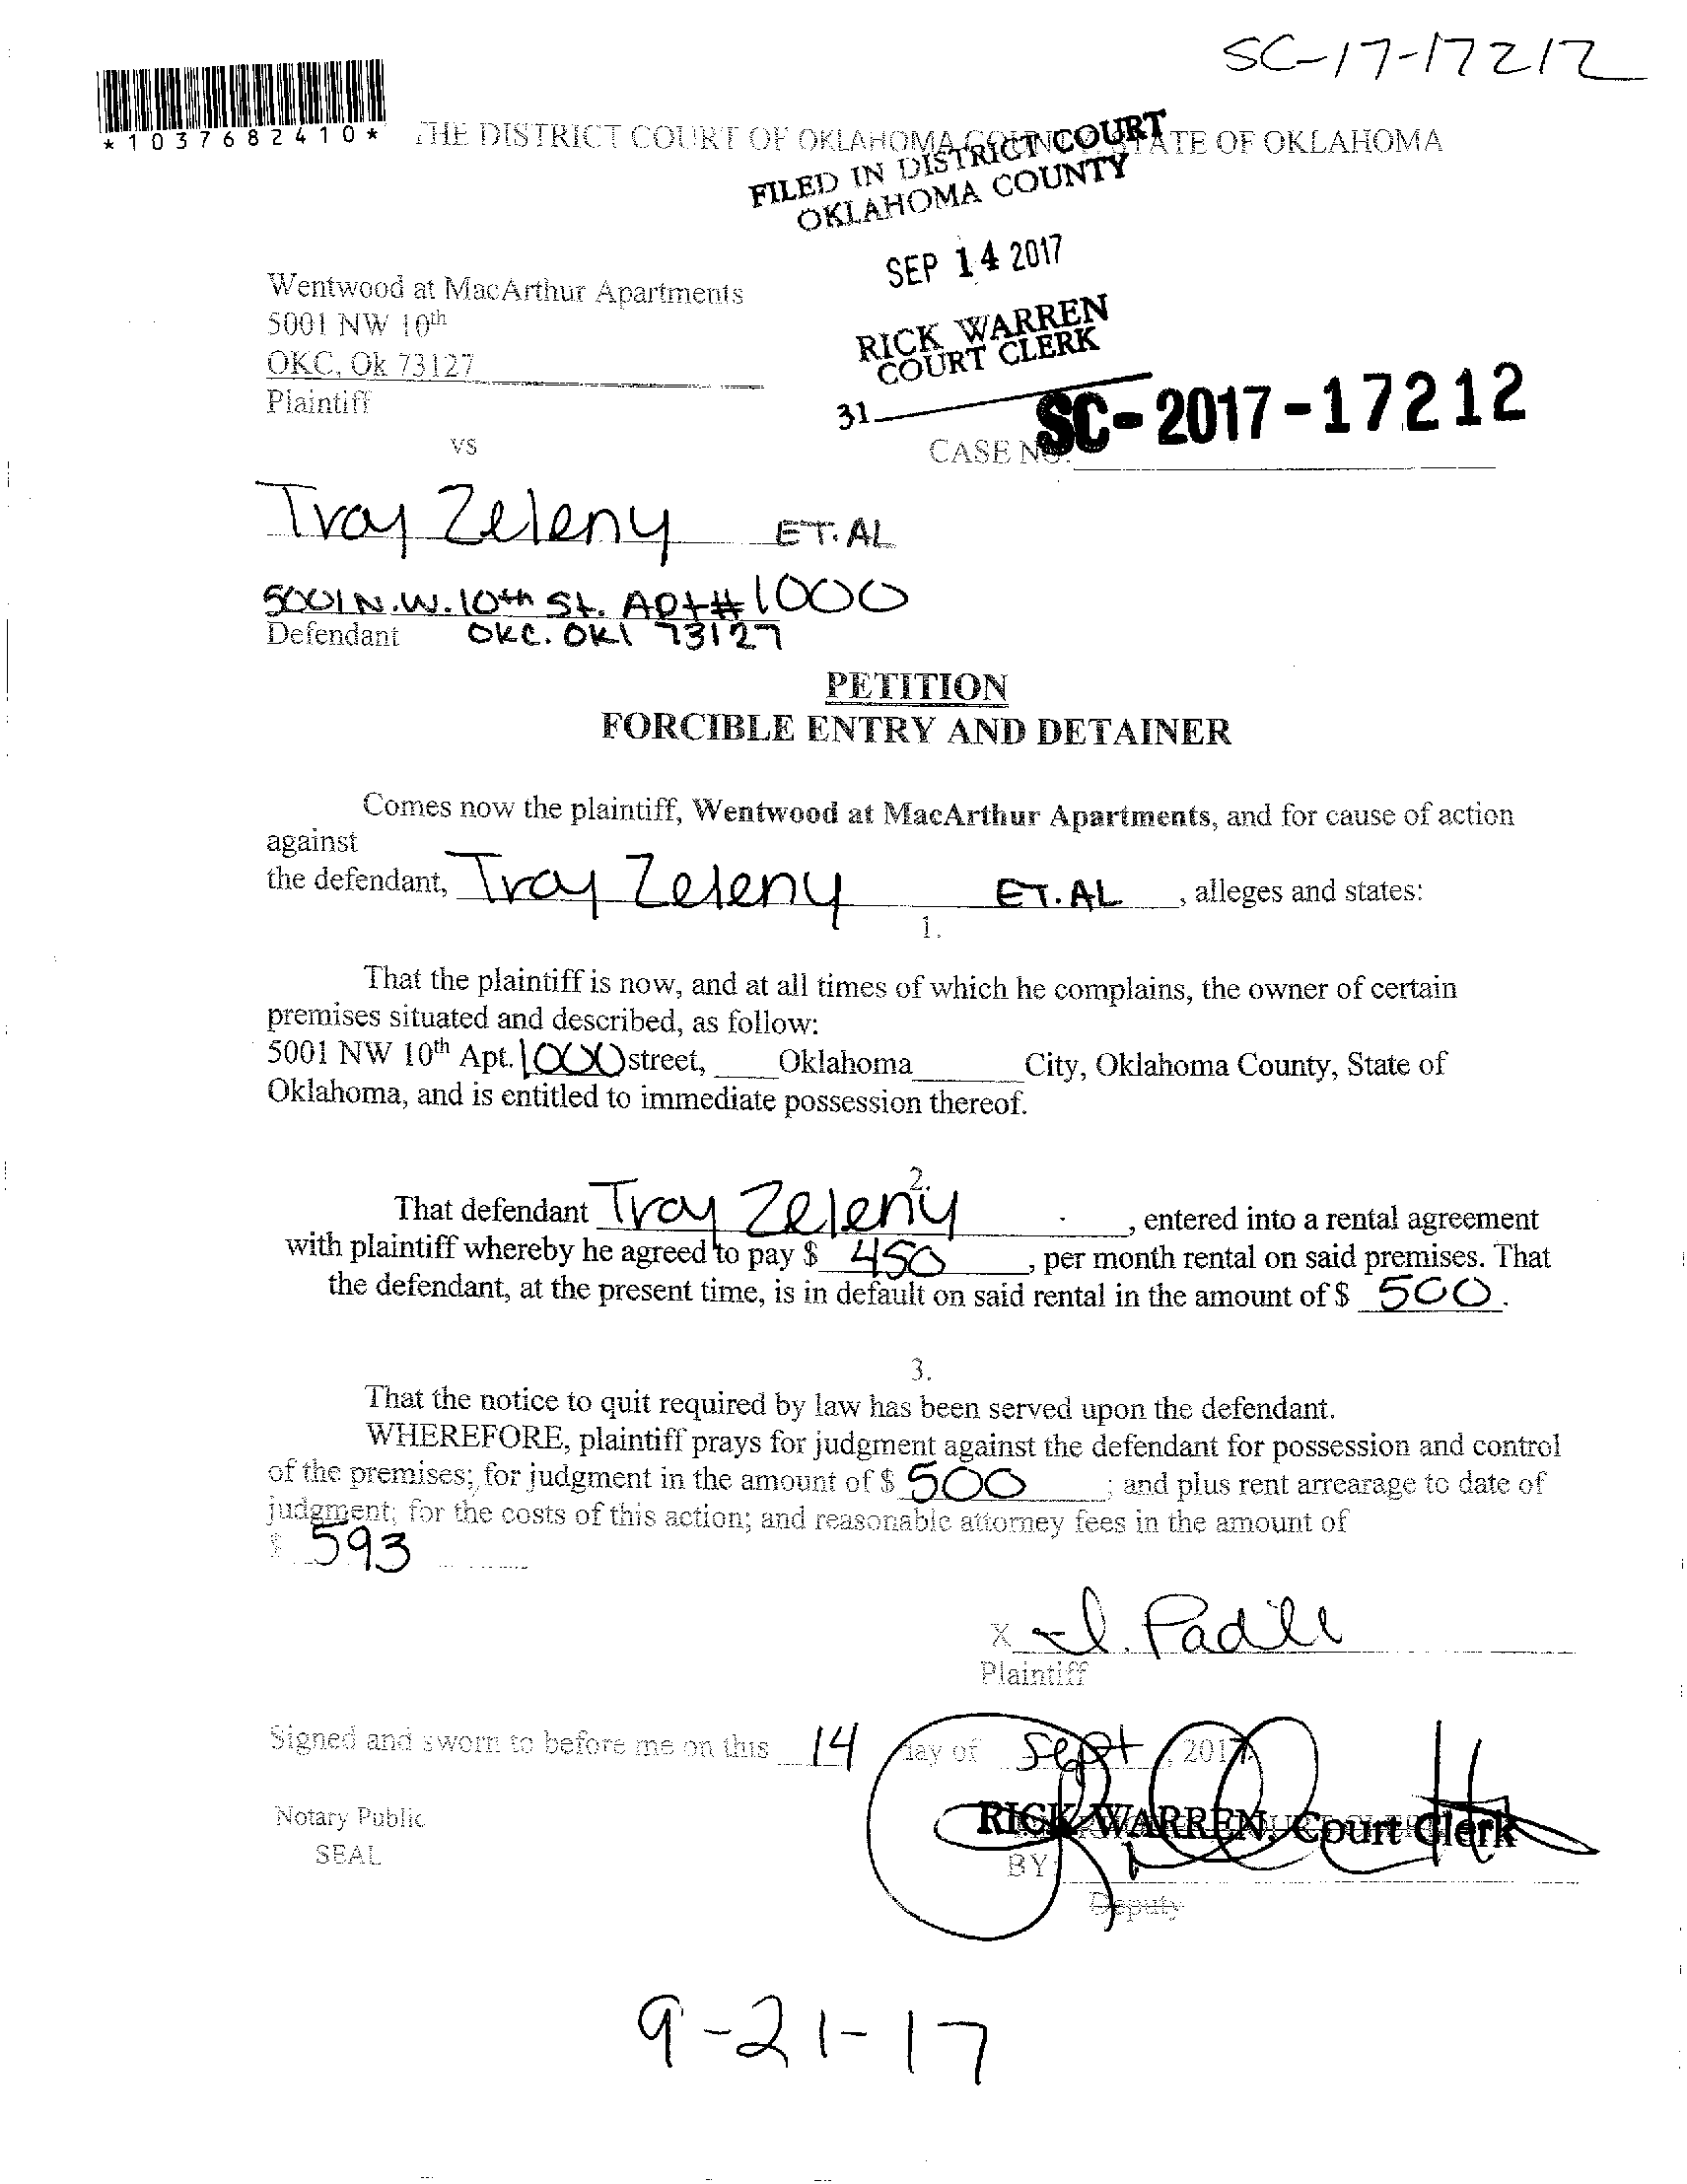 SC-17-17212
*1037682410*
THE DISTRICT COURT OF OKLAHOMA COUNTY, STATE OF OKLAHOMA
FILED IN DISTRICT COURT
OKLAHOMA COUNTY
SEP 14 2017
RICK WARREN
COURT CLERK
31
Wentwood at MacArthur Apartments
5001 NW 10th
OKC, Ok 73127
Plaintiff
vs
CASE NO. SC-2017-17212
Troy Zeleny ET.AL
5001 N.W. 10th St. Apt# 1000
Defendant OKC. OKl 73127
PETITION
FORCIBLE ENTRY AND DETAINER
Comes now the plaintiff, Wentwood at MacArthur Apartments, and for cause of action
against
the defendant, Troy Zeleny ET.AL , alleges and states:
1.
That the plaintiff is now, and at all times of which he complains, the owner of certain
premises situated and described, as follow:
5001 NW 10th Apt. 1000 street, ____Oklahoma_______City, Oklahoma County, State of
Oklahoma, and is entitled to immediate possession thereof.
2.
That defendant Troy Zeleny , entered into a rental agreement
with plaintiff whereby he agreed to pay $ 450 , per month rental on said premises. That
the defendant, at the present time, is in default on said rental in the amount of $ 500.
3.
That the notice to quit required by law has been served upon the defendant.
WHEREFORE, plaintiff prays for judgment against the defendant for possession and control
of the premises; for judgment in the amount of $ 500 ; and plus rent arrearage to date of
judgment; for the costs of this action; and reasonable attorney fees in the amount of
$ 593
X J. Padill
Plaintiff
Signed and sworn to before me on this 14 day of Sept , 2017.
Notary Public
SEAL
RICK WARREN, Court Clerk
BY:
Deputy
9-21-17